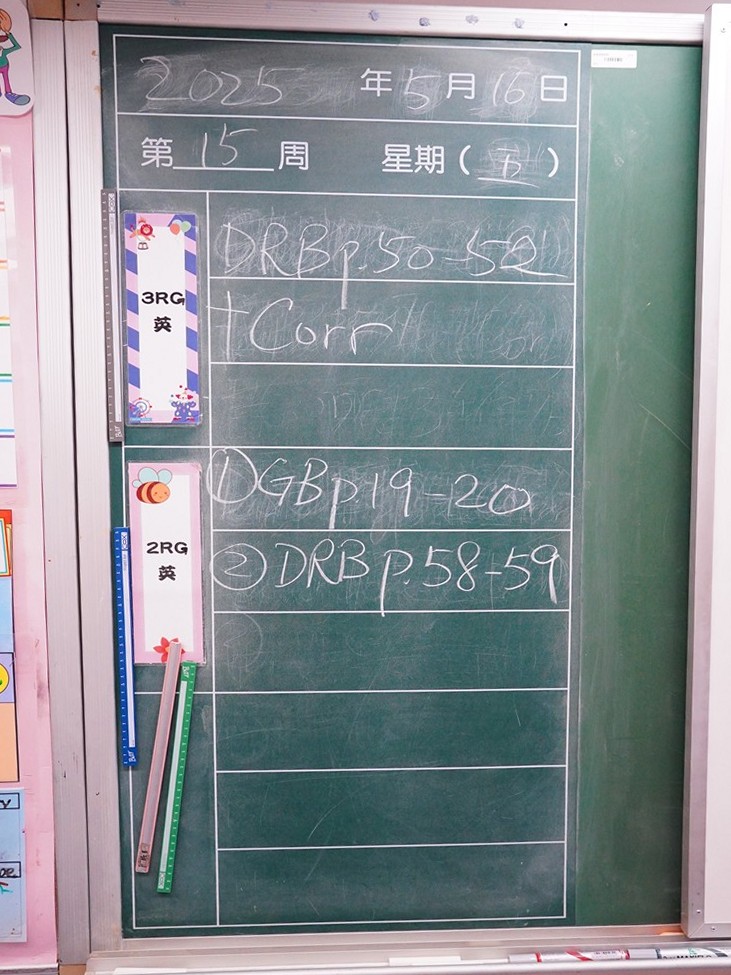 2025 年 5 月 16 日
第 15 周 星期 ( 五 )
3RG
英
DRB p.50-52
+ Corr
2RG
英
① GB p.19-20
② DRB p.58-59